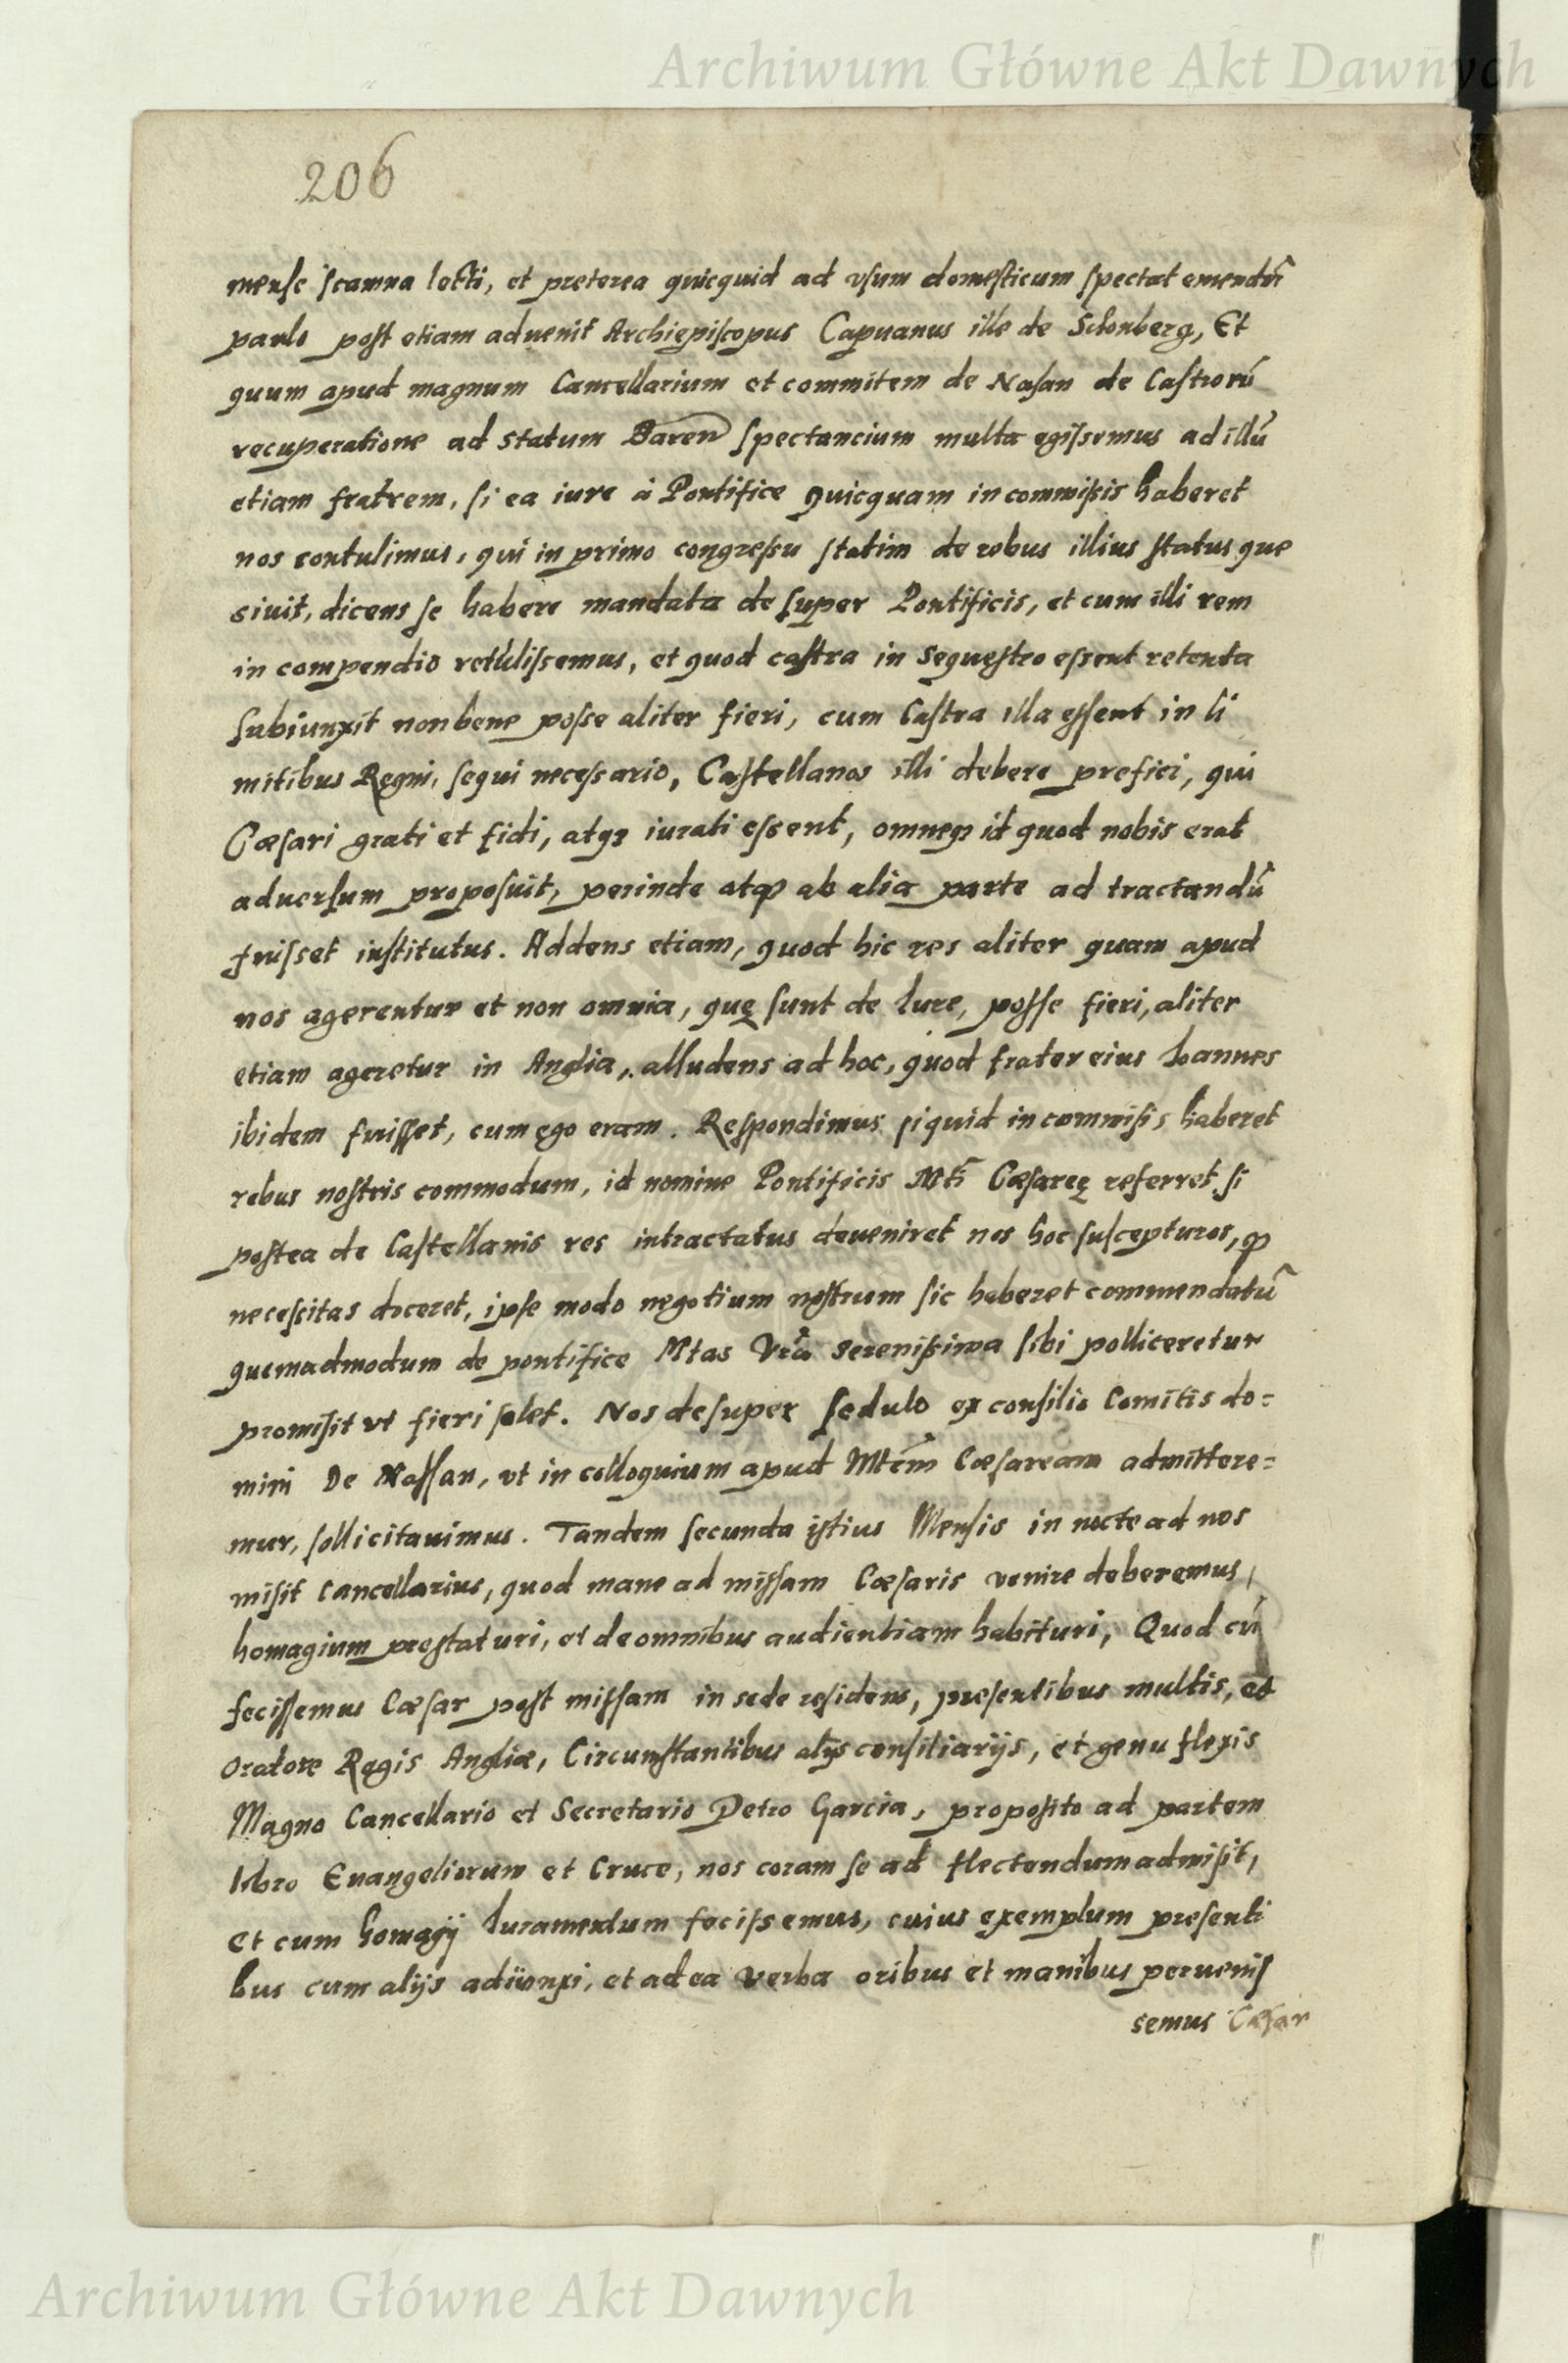 Archiwum Główne Akt Dawnych
206
mense scamna lecti, et preterea quicquid ad vsum domesticum spectat emendũ
paulo post etiam aduenit Archiepiscopus Capuanus ille de Schonberg, Et
quum apud magnum Cancellarium et commitem de Nasan de Castrorũ
recuperatione ad statum Baren spectancium multa egissemus ad illũ
etiam fratrem, si ea iure à Pontifice quicquam in commissis haberet
nos contulimus, qui in primo congressu statim de rebus illius status que
siuit, dicens se habere mandata desuper Pontificis, et cum illi rem
in compendio retulissemus, et quod castra in sequestro essent retenta
subiunxit non bene posse aliter fieri, cum Castra illa essent in li
mitibus Regni, sequi necessario, Castellanos illi debere prefici, qui
Cæsari grati et fidi, atq3 iurati essent, omneq3 id quod nobis erat
aduersum proposuit, perinde atq3 ab alia parte ad tractandũ
fuisset institutus. Addens etiam, quod hic res aliter quam apud
nos agerentur et non omnia, quę sunt de Iure, posse fieri, aliter
etiam ageretur in Anglia, alludens ad hoc, quod frater eius Ioannes
ibidem fuisset, cum ego eram. Respondimus siquid in commisis haberet
rebus nostris commodum, id nomine Pontificis Mti Cæsareę referret si
postea de Castellanis res intractatus deueniret nos hoc suscepturos, q3
necescitas doceret, ipse modo negotium nostrum sic haberet commendatũ
quemadmodum de pontifice Mtas Vra Serenissima sibi polliceretur
promisit vt fieri solet. Nos desuper sedulo ex consilio Comitis do=
mini De Nassan, vt in colloquium apud Mtem Cæsaream admittere=
mur, sollicitauimus. Tandem secunda istius Mensis in nocte ad nos
misit Cancellarius, quod mane ad missam Cæsaris venire deberemus,
homagium prestaturi, et de omnibus audientiam habituri, Quod cũ
fecissemus Cæsar post missam in sede residens, presentibus multis, et
Oratore Regis Angliæ, Circumstantibus alijs consiliarijs, et genu flexis
Magno Cancellario et Secretario Petro Garcia, proposito ad partem
libro Euangeliorum et Cruce, nos coram se ad flectendum admisit,
Et cum homagij Iuramentum fecissemus, cuius exemplum presenti
bus cum alijs adiũnxi, et ad ea verba oribus et manibus peruenis
semus Cæsar
Archiwum Główne Akt Dawnych